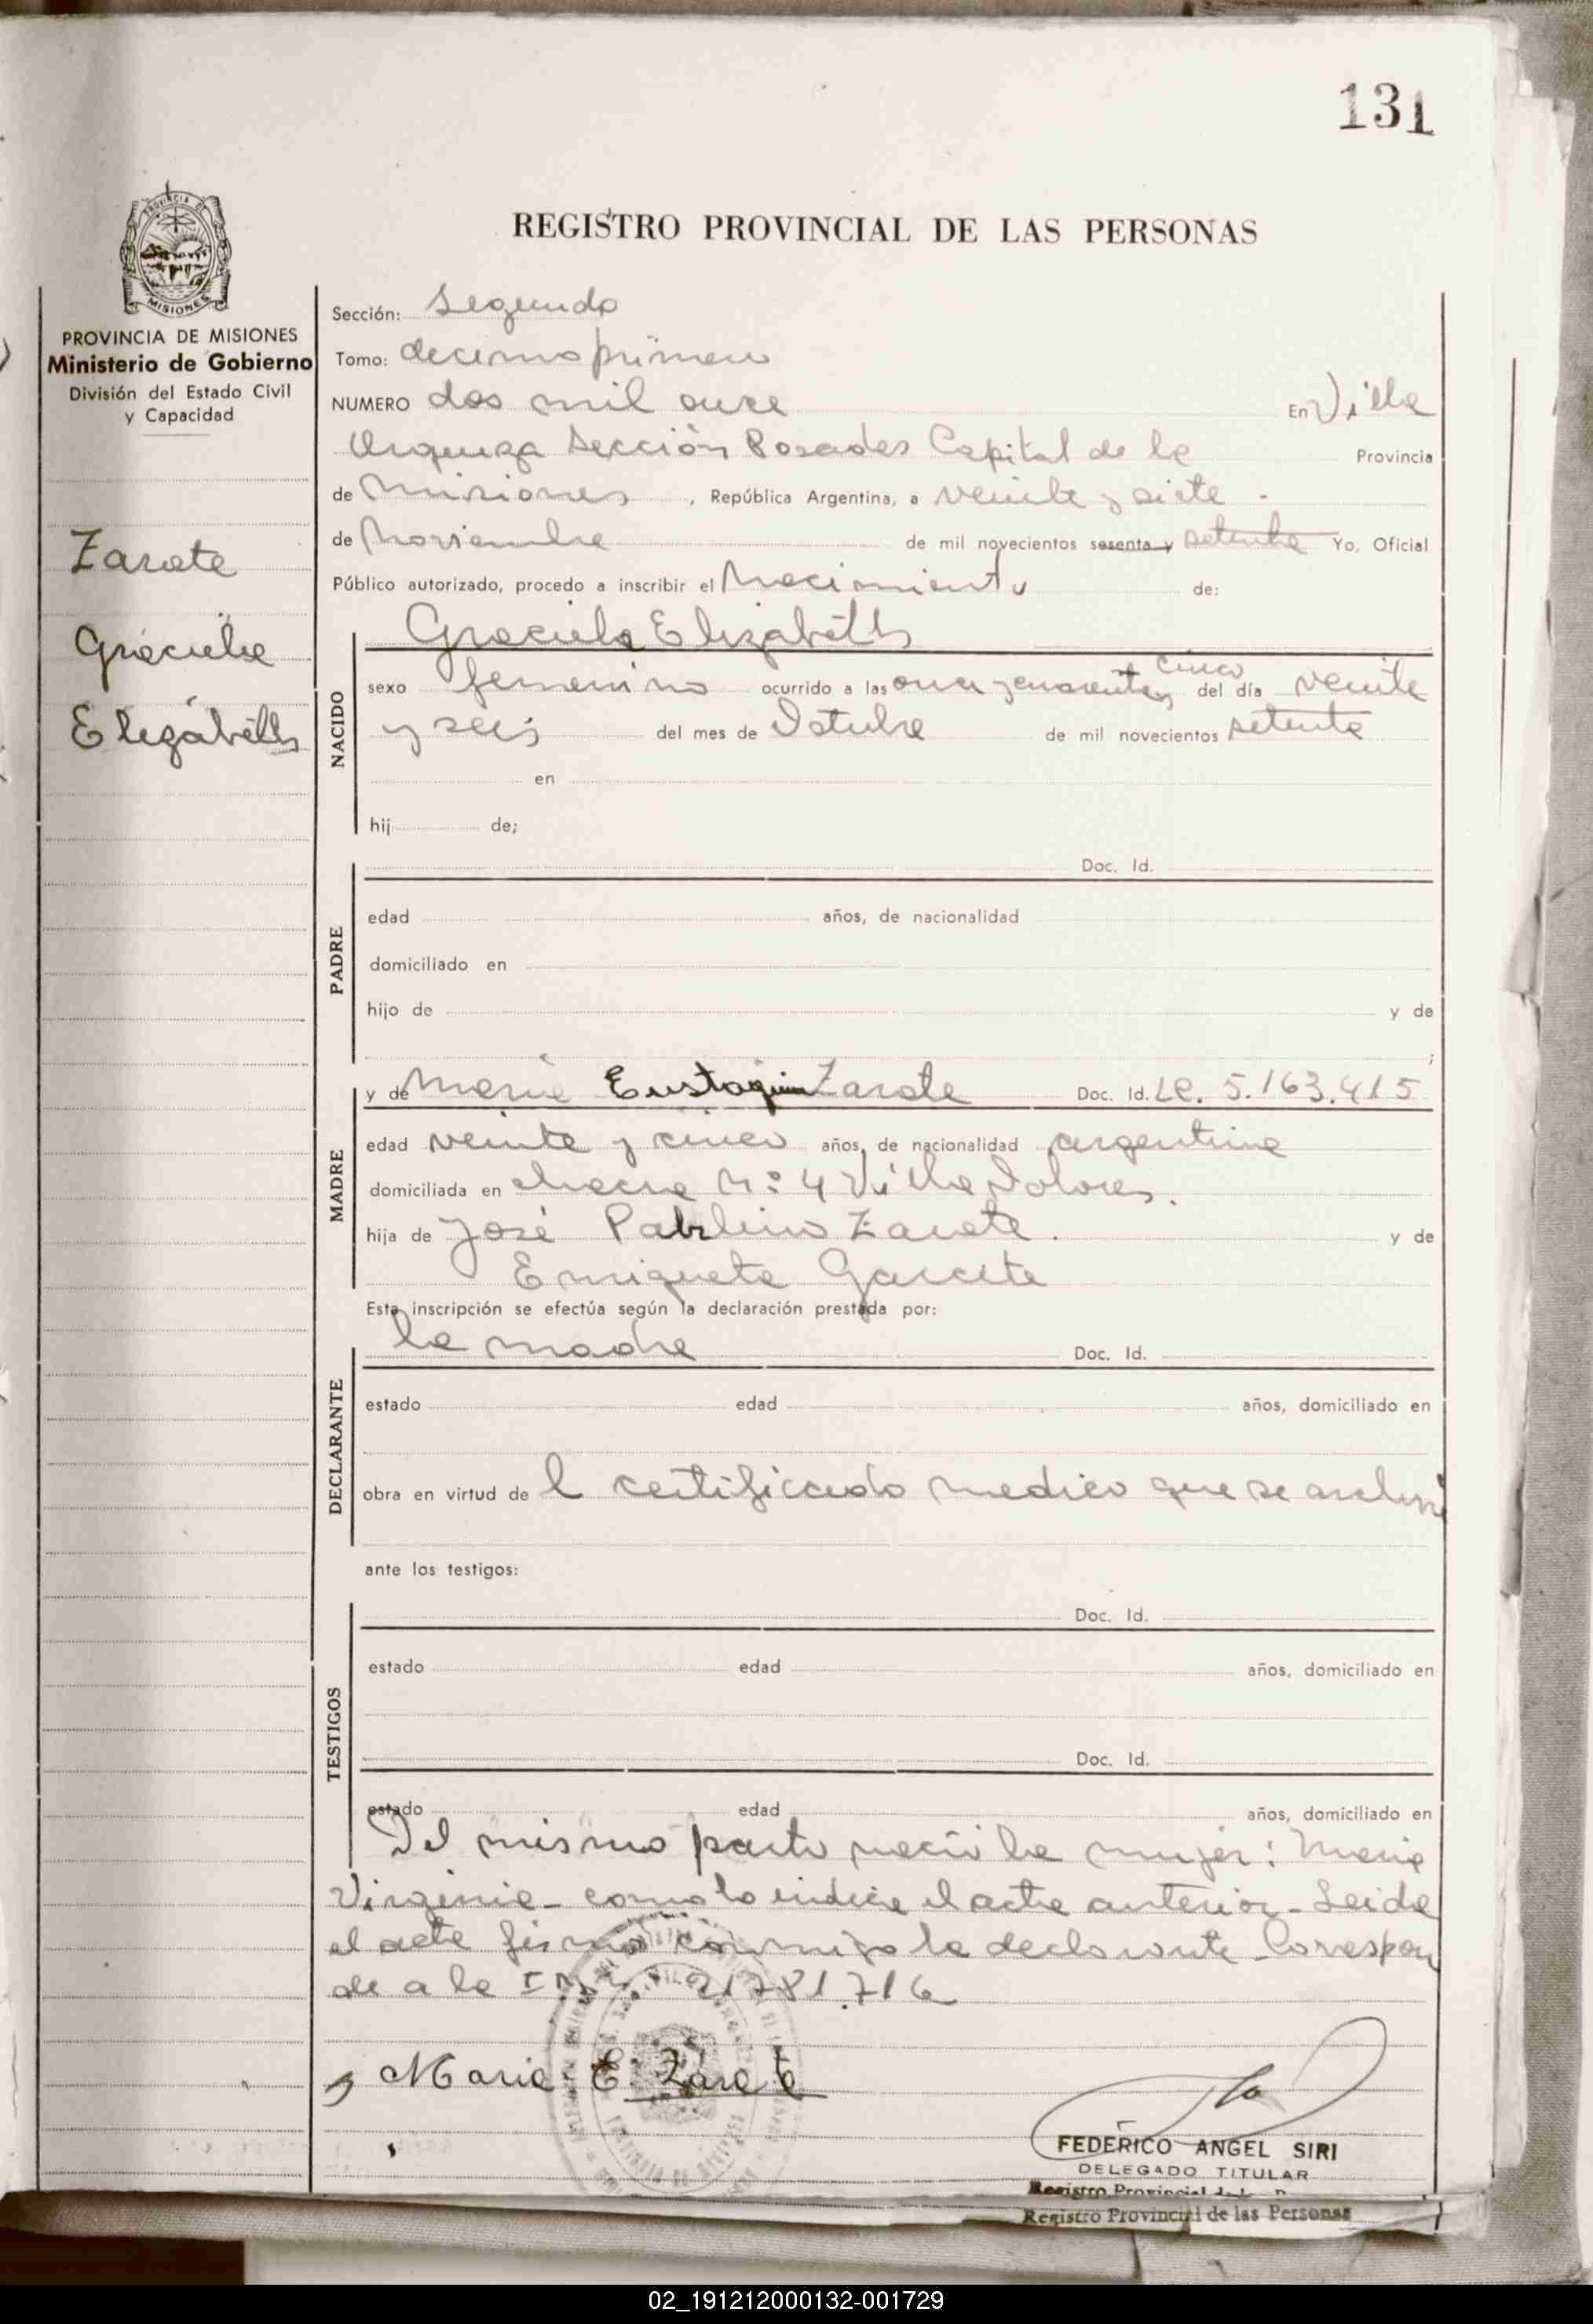 131
REGISTRO PROVINCIAL DE LAS PERSONAS
PROVINCIA DE MISIONES
Ministerio de Gobierno
División del Estado Civil
y Capacidad
Zarate
Graciela
Elizabeth
Sección: Segunda
Tomo: decimo primero
NUMERO dos mil once En Villa
Urquiza Sección Posadas Capital de la Provincia
de Misiones, República Argentina, a veinte y siete -
de Noviembre de mil novecientos sesenta y setenta Yo, Oficial
Público autorizado, procedo a inscribir el Nacimiento de:
NACIDO
Graciela Elizabeth
sexo femenino ocurrido a las once y cuarenta y cinco del día veinte
y seis del mes de Octubre de mil novecientos setenta
en
hij de;
PADRE
Doc. Id.
edad años, de nacionalidad
domiciliado en
hijo de y de
;
MADRE
y de Maria Eustaquia Zarate Doc. Id. LC. 5.163.415
edad veinte y cinco años, de nacionalidad argentina
domiciliada en chacra N:o 4 Villa Dolores.
hija de José Zarate. y de
Enriqueta Garcete
Esta inscripción se efectúa según la declaración prestada por:
DECLARANTE
la madre Doc. Id.
estado edad años, domiciliado en
obra en virtud de l certificado medico que se archiva
ante los testigos:
TESTIGOS
Doc. Id.
estado edad años, domiciliado en
Doc. Id.
estado edad años, domiciliado en
Del mismo parto nació la mujer: Maria
Virginia - como lo indica el acta anterior - Leida
el acta firma conmigo la declarante - Correspon
de a la 21781.716
Maria E. Zarate
FEDERICO ANGEL SIRI
DELEGADO TITULAR
Registro Provincial
Registro Provincial de las Personas
02_191212000132-001729